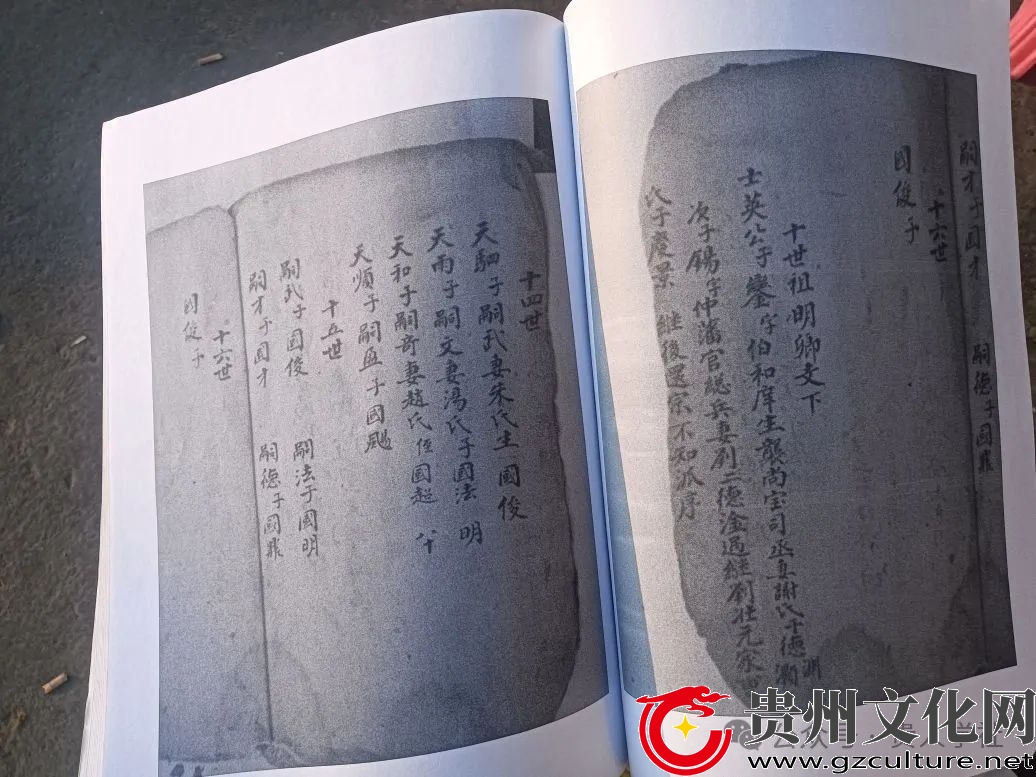 嗣才子國才 嗣德子國鼎
十六世
國俊子
十世祖明卿文下
士英公子鑾字伯和庠生襲尚宝司丞直謝氏子德渊
次子錫字仲藩官總兵妻劉二德淦過継劉壯元家
氏子慶景 継後還宗不知派序
十四世
天駟子嗣武妻朱氏生國俊
天雨子嗣文妻湯氏子國法 明
天和子嗣奇妻趙氏侄國超
天順子嗣孟子國颺
十五世
嗣武子國俊 嗣法子國明
嗣才子國才 嗣德子國鼎
十六世
國俊子
贵州文化网
www.gzculture.net